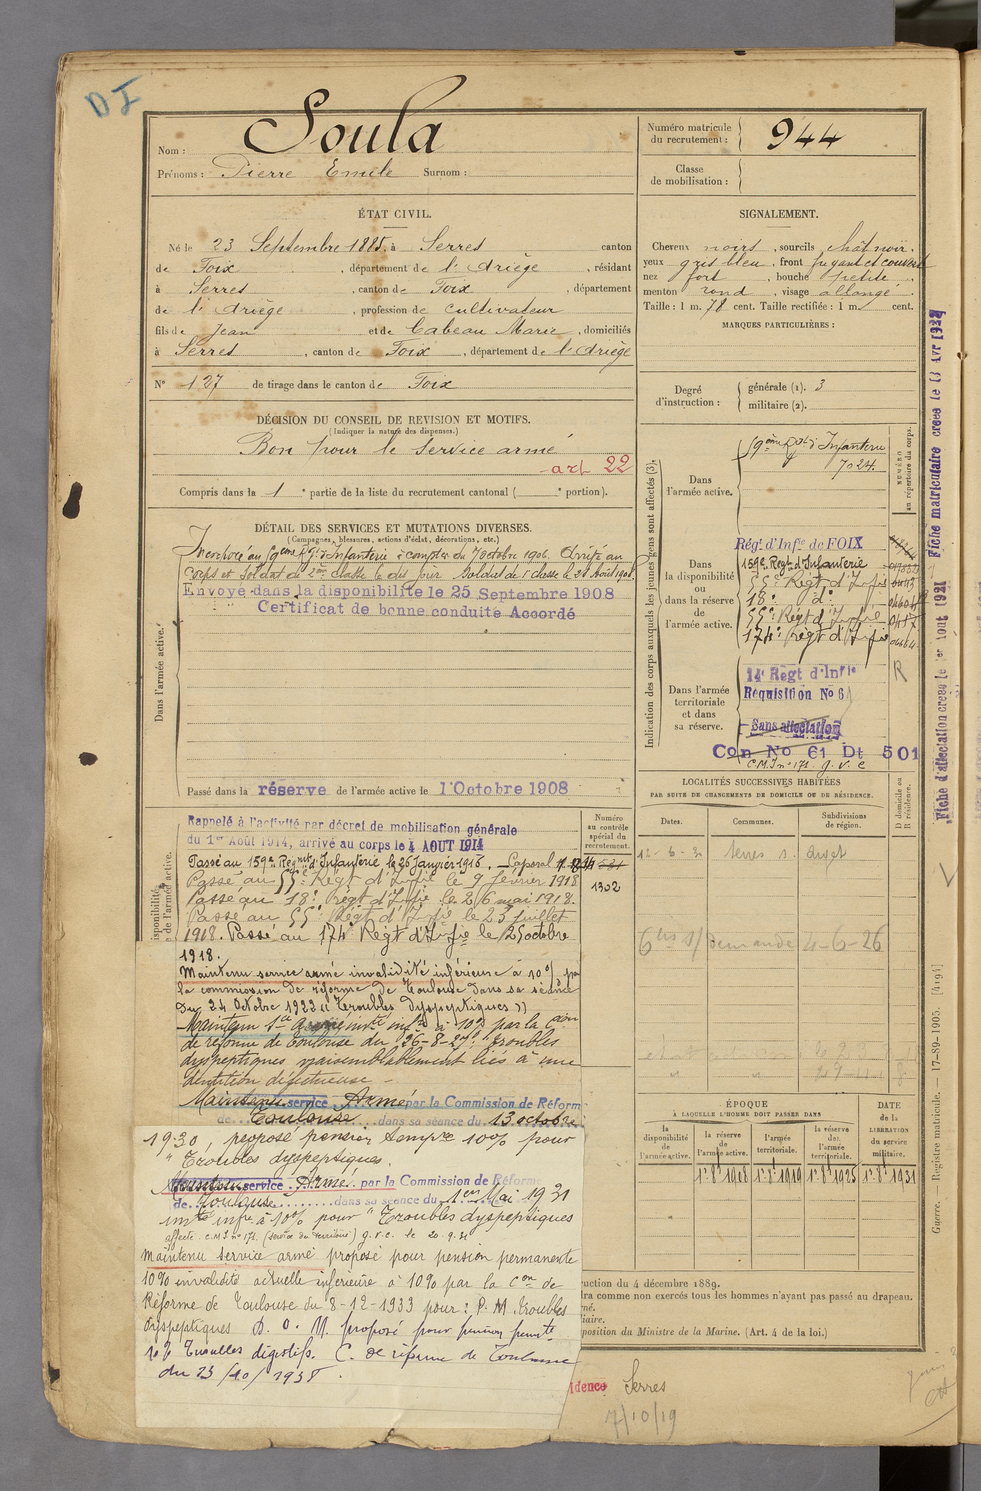 D I
Nom : Soula
Prénoms : Pierre Emile Surnom :
Numéro matricule du recrutement : 944
Classe de mobilisation :
ÉTAT CIVIL.
Né le 23 Septembre 1885, à Serres canton
de Foix, département de l'Ariège, résidant
à Serres, canton de Foix, département
de l'Ariège, profession de cultivateur
fils de Jean et de Cabeau Marie, domiciliés
à Serres, canton de Foix, département de l'Ariège
N° 127 de tirage dans le canton de Foix
SIGNALEMENT.
Cheveux noirs, sourcils chât noir.
yeux gris bleu, front fuyant et couvert
nez fort, bouche petite
menton rond, visage allongé.
Taille : 1 m. 78 cent. Taille rectifiée : 1 m. cent.
MARQUES PARTICULIÈRES :
Degré d'instruction :
générale (1). 3
militaire (2).
DÉCISION DU CONSEIL DE REVISION ET MOTIFS.
(Indiquer la nature des dispenses.)
Bon pour le service armé
art 22
Compris dans la 1e partie de la liste du recrutement cantonal ( e portion).
DÉTAIL DES SERVICES ET MUTATIONS DIVERSES.
(Campagnes, blessures, actions d'éclat, décorations, etc.)
Incorporé au 59eme Rgt d'Infanterie à compter du 7 octobre 1906. Arrivé au
corps et soldat de 2eme classe le dit jour. Soldat de 1e classe le 28 Août 1908
Envoyé dans la disponibilité le 25 Septembre 1908
Certificat de bonne conduite Accordé
Dans l'armée active.
Passé dans la réserve de l'armée active le 1 Octobre 1908
Indication des corps auxquels les jeunes gens sont affectés (3).
NUMÉRO au répertoire du corps.
Dans l'armée active.
59eme Rgt d'Infanterie
7024.
Dans la disponibilité ou dans la réserve de l'armée active.
Régt d'Infie de FOIX
159e Régt d'Infanterie
55e Régt d'Infie
18e do
55e Régt d'Infie
174e Régt d'Infie
Dans l'armée territoriale et dans sa réserve.
14e Régt d'Infie
Requisition No 6
Sans affectation
Con No 61 Dt 501
C.M.I n° 171. g.v.c
R
Fiche matriculaire créée le 13 Avr 1932
Fiche d'affectation créée le 1er Aout 1921
LOCALITÉS SUCCESSIVES HABITÉES
PAR SUITE DE CHANGEMENTS DE DOMICILE OU DE RÉSIDENCE.
Dates. Communes. Subdivisions de région.
D domicile ou R résidence.
12-6-2 Serres s. Arget
demande 4-6-26
Rappelé à l'activité par décret de mobilisation générale
du 1er Août 1914, arrivé au corps le 4 AOUT 1914
Numéro au contrôle spécial du recrutement.
1302
Passé au 159e Régiment d'Infanterie le 26 Janvier 1916. Caporal
Passé au 55e Régt d'Infie le 9 février 1918
Passé au 18e Régt d'Infie le 26 mai 1918.
Passé au 55e Régt d'Infie le 23 juillet
1918. Passé au 174e Régt d'Infie le 25 octobre
1918.
Maintenu service armé invalidité inférieure à 10% par
la commission de réforme de Toulouse dans sa séance
du 24 Octobre 1922 "Troubles dyspeptiques"
Maintenu Sce Armé invté infre à 10% par la Cion
de réforme de Toulouse du 26-8-29. "Troubles
dyspeptiques vraisemblablement liés à une
dentition défectueuse -
Maintenu service Armé par la Commission de Réform
de Toulouse dans sa séance du 13 octobre
1930, proposé pension tempre 10% pour
"Troubles dyspeptiques.
Maintenu service Armé. par la Commission de Réforme
de Toulouse dans sa séance du 1er Mai 1931
invté infre à 10% pour "Troubles dyspeptiques
affecté C.M.I n° 171 (service du territoire) g.v.c. le 20.9.31
Maintenu service armé proposé pour pension permanente
10% invalidité actuelle inférieure à 10% par la Con de
Réforme de Toulouse du 8-12-1933 pour : P.M Troubles
dyspeptiques D.O.N. proposé pour pension permte
10% Troubles digestifs. C. de réforme de Toulouse
du 23/10/1938.
ÉPOQUE
À LAQUELLE L'HOMME DOIT PASSER DANS
DATE de la LIBÉRATION du service militaire.
la disponibilité de l'armée active.
la réserve de l'armée active.
l'armée territoriale.
la réserve de l'armée territoriale.
1er 8e 1908 1er 8e 1919 1er 8e 1925 1er 8e 1931
uction du 4 décembre 1889.
dra comme non exercés tous les hommes n'ayant pas passé au drapeau.
mé.
iaire.
position du Ministre de la Marine. (Art. 4 de la loi.)
idence Serres
7/10/19
Guerre. Registre matricule. — 17-89-1905. [4194]